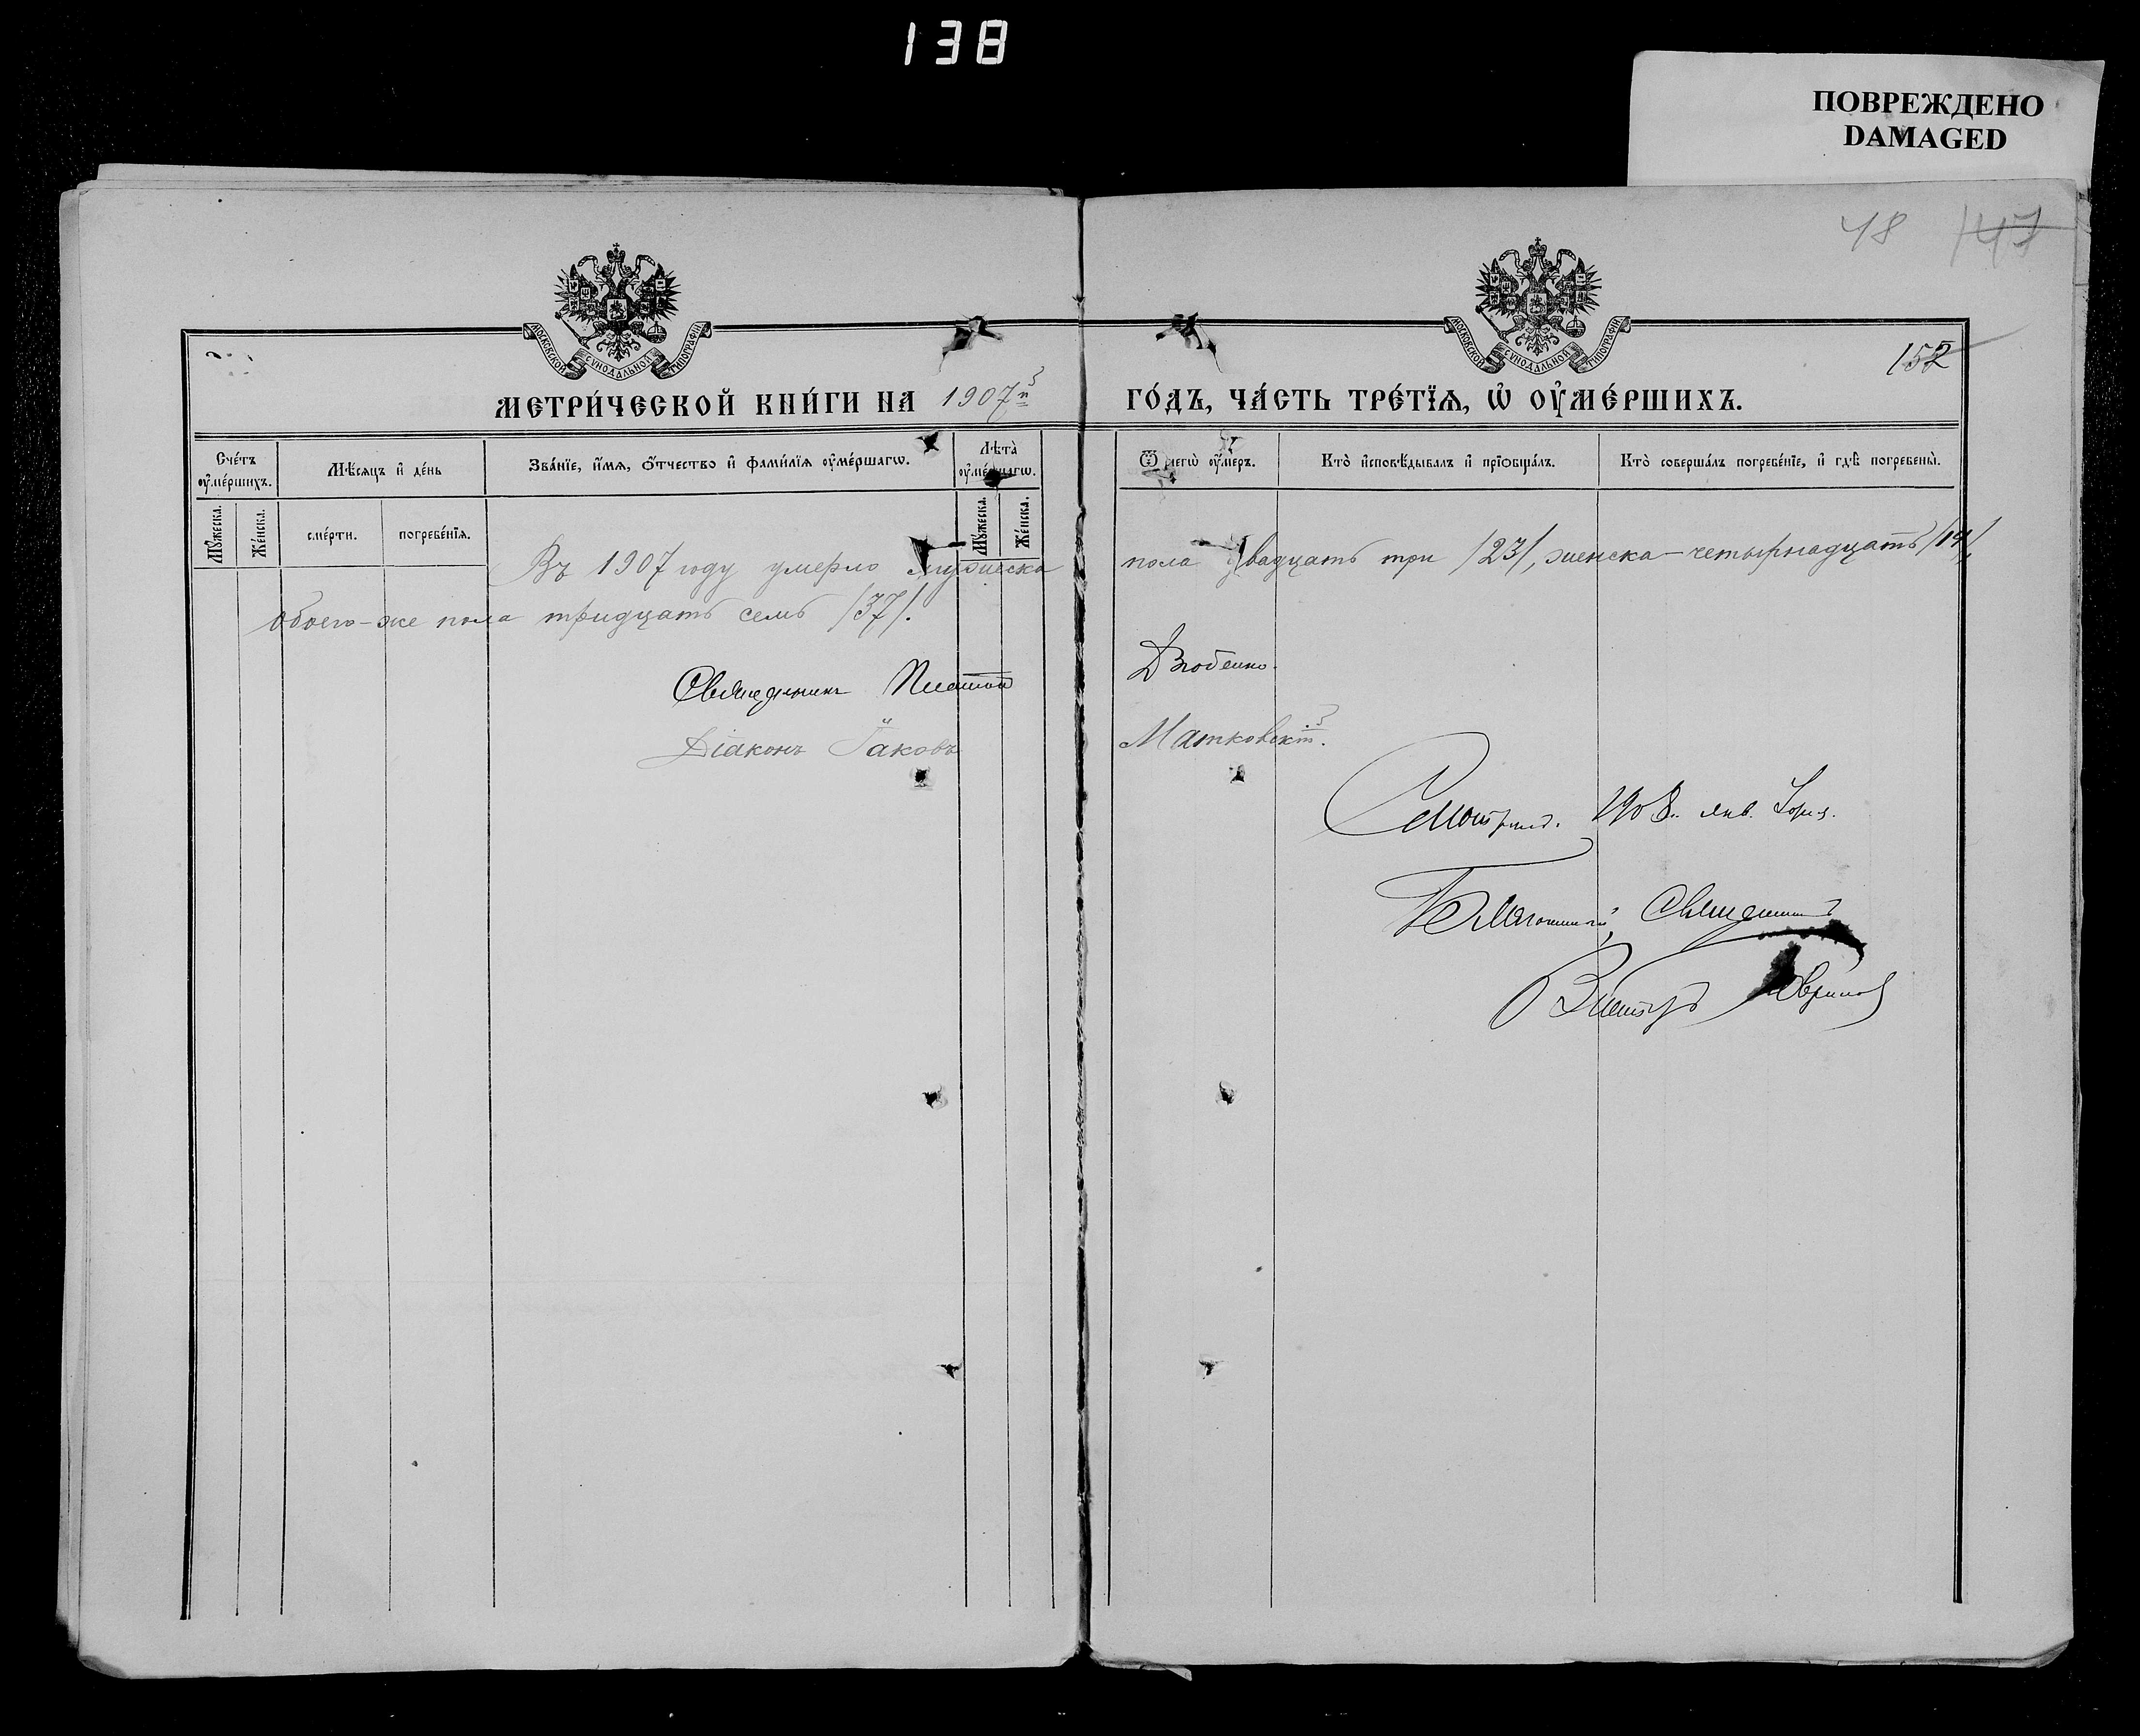 138
ПОВРЕЖДЕНО
DAMAGED
48 147
152
МОСКОВСКОЙ СѴНОДАЛЬНОЙ ТИПОГРАФІИ
МОСКОВСКОЙ СѴНОДАЛЬНОЙ ТИПОГРАФІИ
МЕТРИ́ЧЕСКОЙ КНИ́ГИ НА 1907й ГО́ДЪ, ЧА́СТЬ ТРЕ́ТЇѦ, Ѡ҆ ОУ҆МЕ́РШИХЪ.
Сче́тъ оу҆ме́ршихъ.
Мѣ́сяцъ и҆ де́нь
Зва́нїе, и҆́мя, ѻ҆́тчество и҆ фами́лїя оу҆ме́ршагѡ.
Лѣта̀ оу҆ме́ршагѡ.
Ѿ чегѡ̀ оу҆́меръ.
Кто̀ и҆сповѣ́дывалъ и҆ прїѻбща́лъ.
Кто̀ соверша́лъ погребе́нїе, и҆ гдѣ̀ погребены̀.
Мꙋ́жеска.
Же́нска.
сме́рти.
погребе́нїя.
Мꙋ́жеска.
Же́нска.
Въ 1907 году умерло мужеска пола двадцать три /23/, женска – четырнадцать /14/,
обоего-же пола тридцать семь /37/.
Священникъ Платонъ
Діаконъ Іаковъ Матковскій.
Смотрѣлъ. 1908. янв.
Благочинный, Священникъ
Викторъ